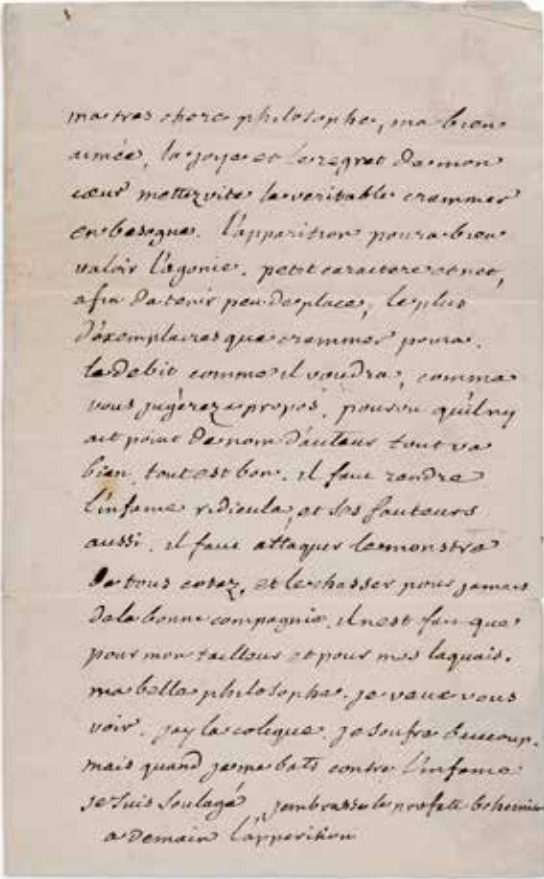 ma tres chere philosophe, ma bien
aimée, la joye et le regret de mon
cœur mettez vite le veritable crammer
en besogne. l'apparition poura bien
valoir l'agonie. petit caractere et net,
afin de tenir peu de place, le plus
d'exemplaires que crammer poura.
le debit comme il voudra, comme
vous jugerez a propos, pourvu qu'il ny
ait point de nom d'auteur tout va
bien, tout est bon. il faut rendre
l'infame ridicule, et ses fauteurs
aussi. il faut attaquer le monstre
de tous cotez, et le chasser pour jamais
de la bonne compagnie. il n'est fait que
pour mon tailleur et pour mes laquais.
ma belle philosophe. je veux vous
voir. jay la colique. je soufre beaucoup.
mais quand je me bats contre l'infame
je suis soulagé jembrasse le profete bohemien
a demain l'apparition